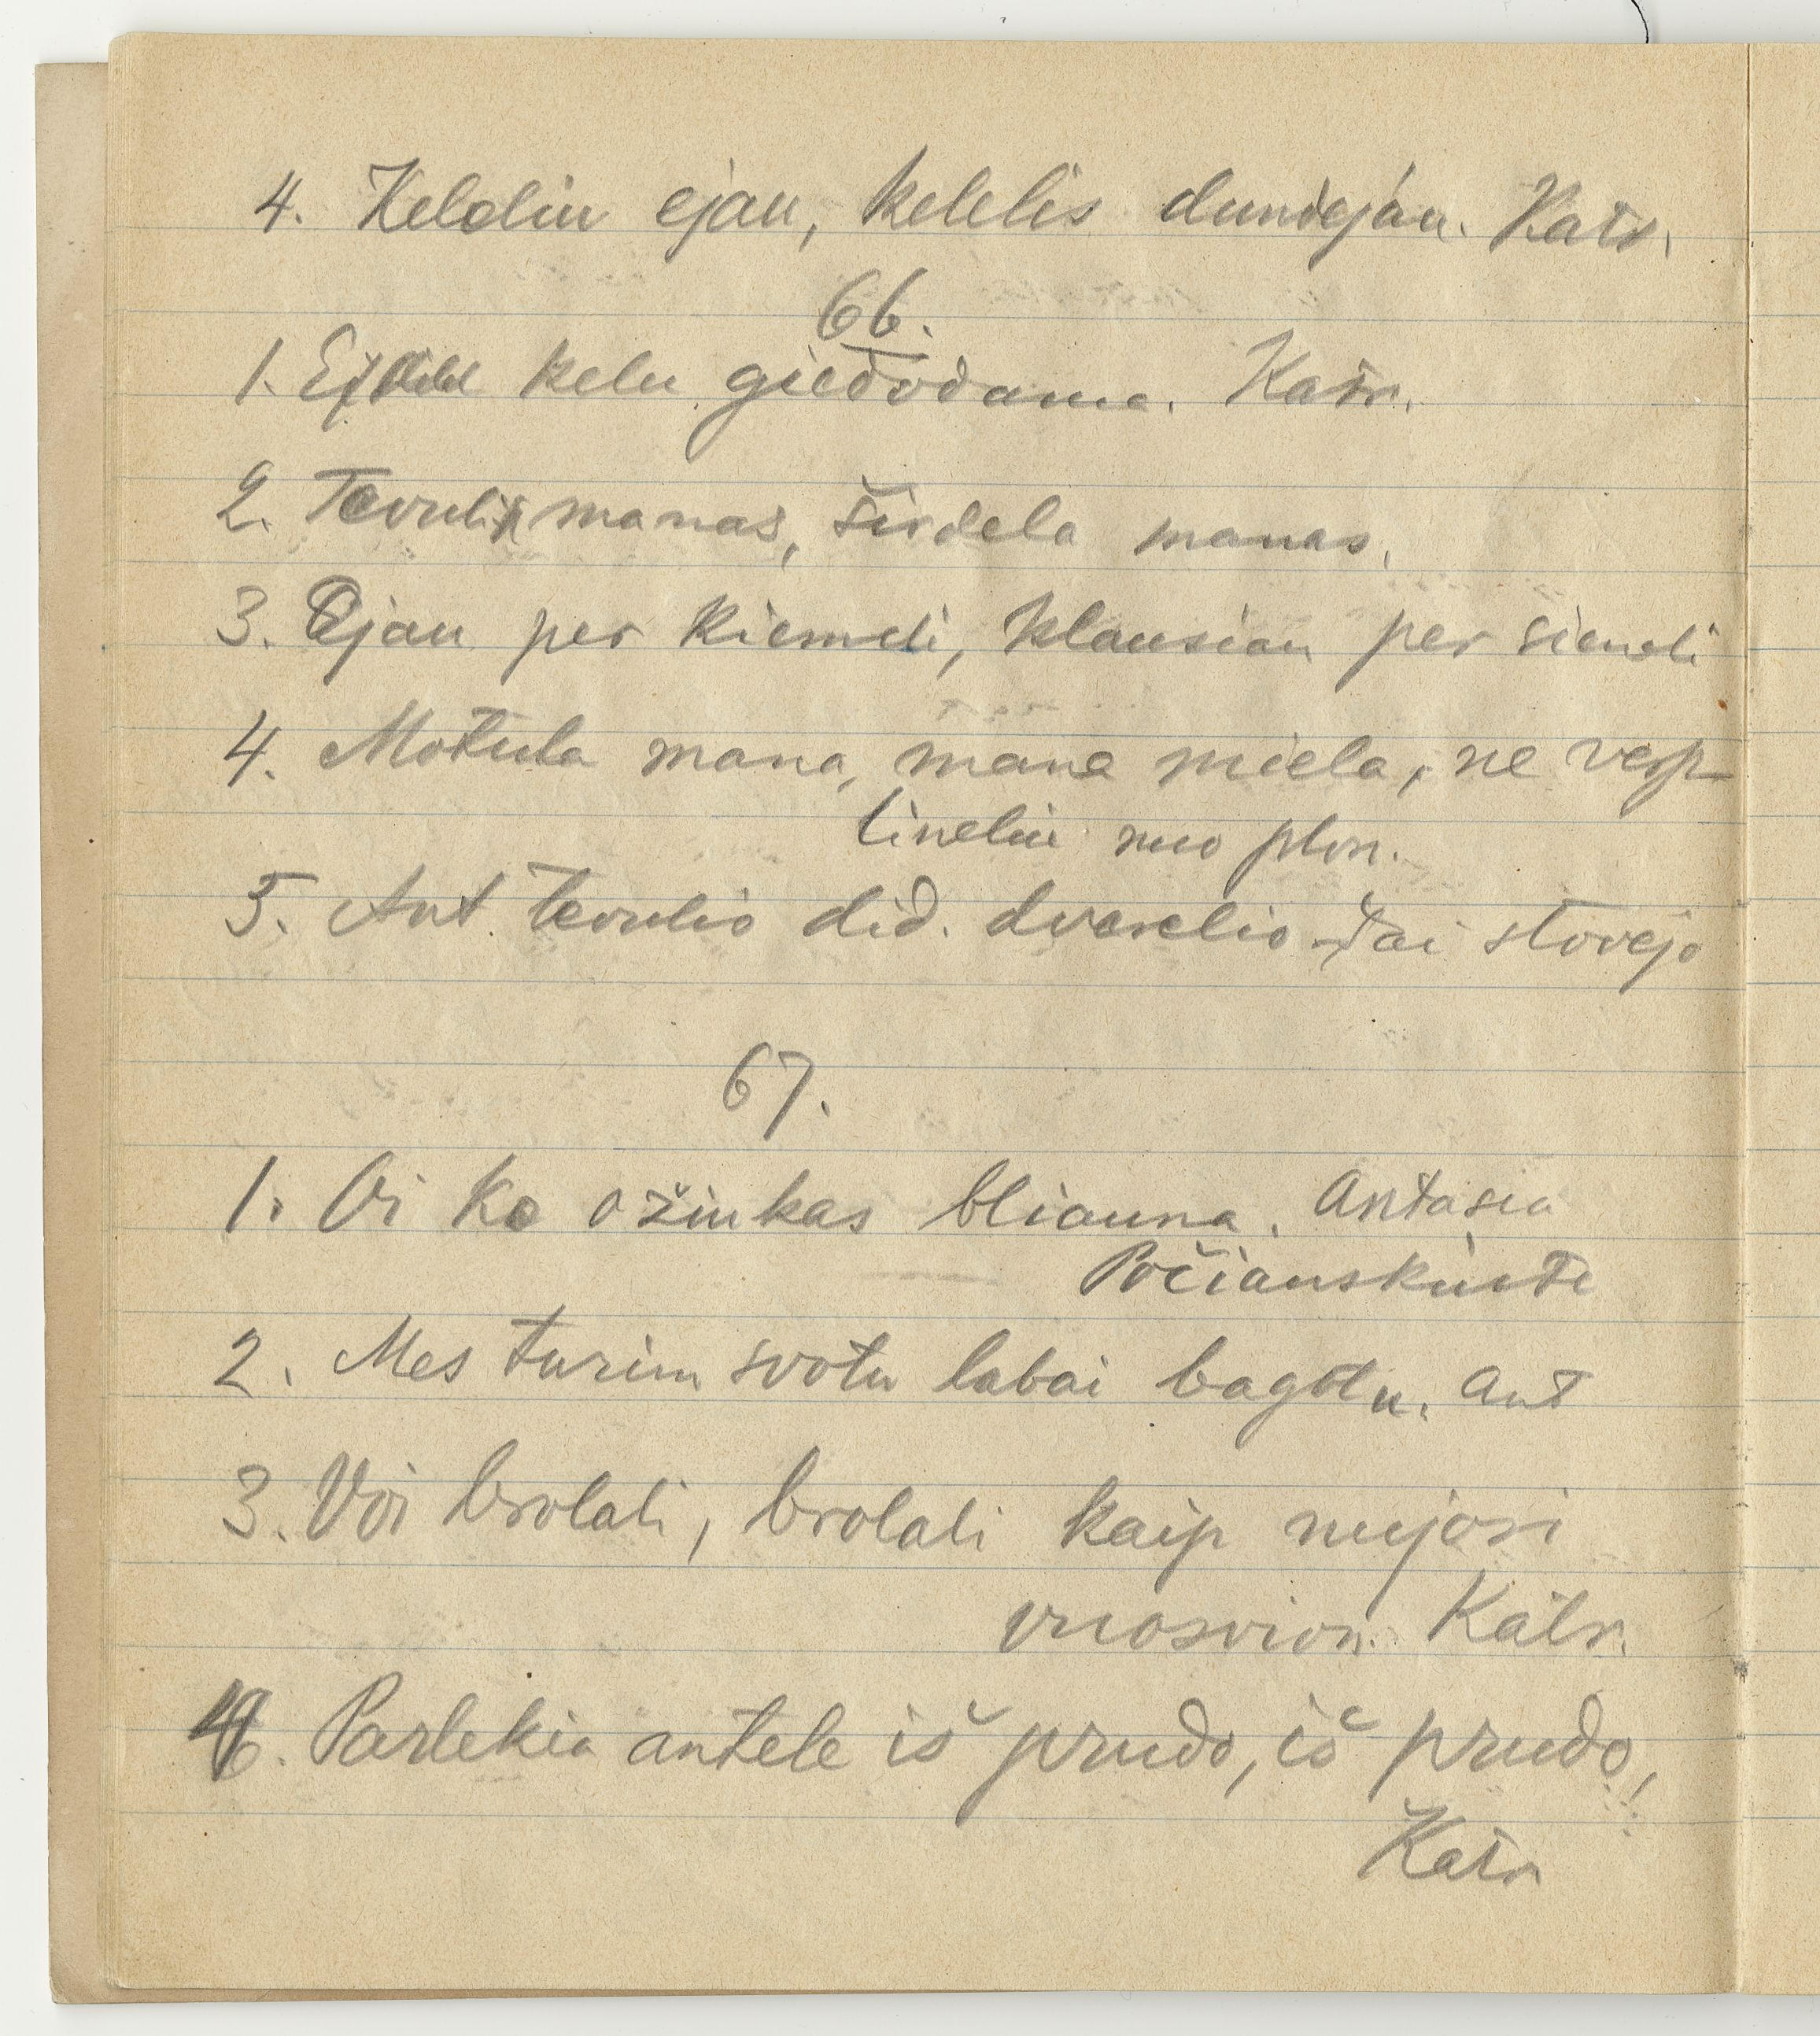 4. Keleliu ejau, kelelis dundėjau. Katr.
66.
1. kelu giedodama. Katr.
2. Tevulis manas, širdela manas,
3. Ejau per kiemeli, klausiau per sieneli
4. Motula mana, mana miela, ne verp
lineliu nuo plon.
5. Ant tevulio did. dvarelio tai stovėjo
67.
1. Oi ko ožiukas bliauna. Antasia
Počiauskiute
2. Mes turim svotu labai bagotu. Ant
3. Voi brolali, brolali kaip nujosi
Katr.
4. Parlekia antele iš prudo, iš prudo,
Katr